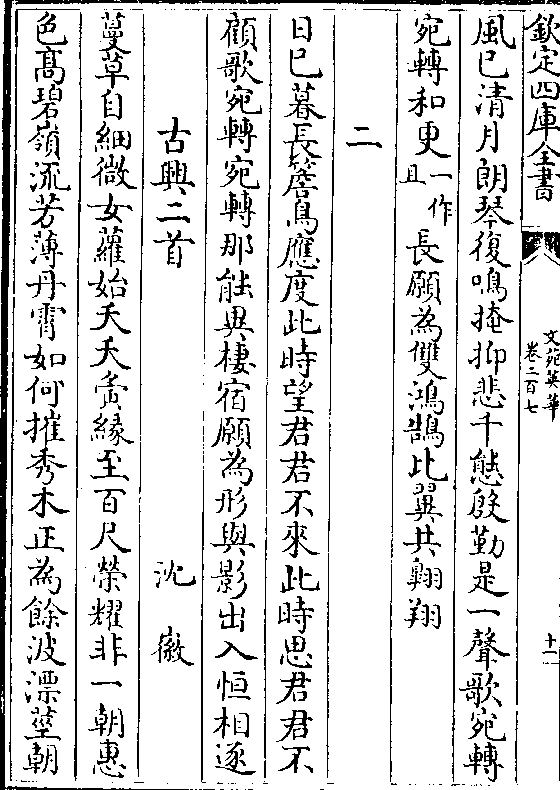 欽定四庫全書
文苑英華
卷二百七
十一
風已清月朗琴復鳴掩抑悲千態殷勤是一聲歌宛轉
宛轉和更一作且長願為雙鴻鵠比翼共翺翔
二
日已暮長簷鳥應度此時望君君不來此時思君君不
顧歌宛轉宛轉那能異棲宿願為形與影出入恒相逐
古興二首
沈徽
蔓草自細微女蘿始夭夭夤緣至百尺榮耀非一朝惠
色髙碧嶺流芳薄丹霄如何摧秀木正為餘波漂莖朝